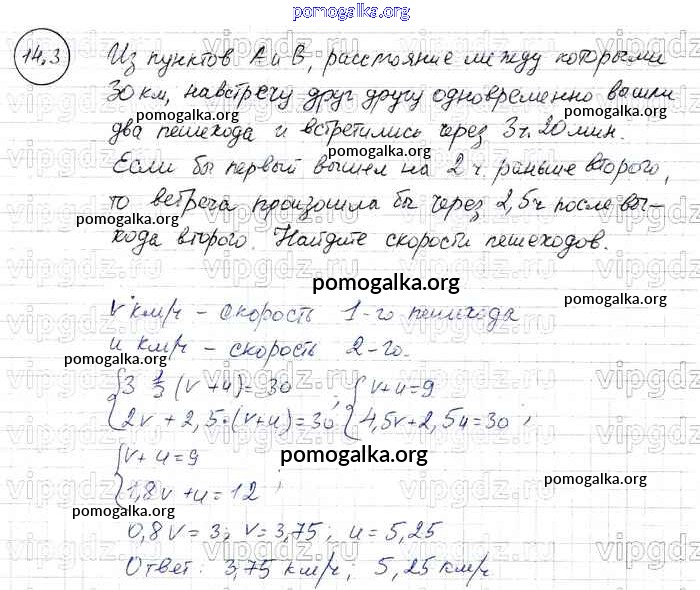 pomogalka.org
14.3
Из пунктов А и В, расстояние между которыми
30 км, навстречу друг другу одновременно вышли
pomogalka.org pomogalka.org
два пешехода и встретились через 3ч. 20мин.
pomogalka.org
Если бы первый вышел на 2 ч. раньше второго,
то встреча произошла бы через 2,5ч после вы-
pomogalka.org pomogalka.org
хода второго. Найдите скорости пешеходов.
pomogalka.org
pomogalka.org
v км/ч – скорость 1-го пешехода
u км/ч – скорость 2-го.
pomogalka.org
3 1/3 (v+u)=30 ; v+u=9
pomogalka.org
2v+2,5·(v+u)=30 4,5v+2,5u=30 ;
v+u=9
pomogalka.org
1,8v+u=12 ;
pomogalka.org pomogalka.org
0,8v=3; v=3,75; u=5,25
Ответ: 3,75 км/ч; 5,25 км/ч
pomogalka.org